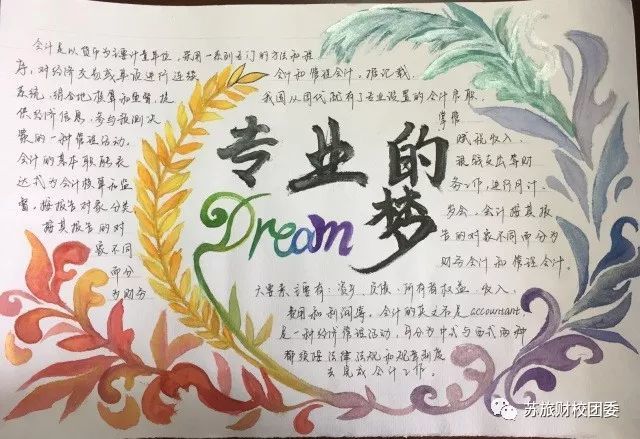 会计是以货币为主要计量单位,采用一系列专门的方法和程
序,对经济交易或事项进行连续
系统、综合地核算和监督,提
供经济信息,参与预测决
策的一种管理活动。
会计的基本职能表
达式为会计核算和监
督,按报告对象分类
按其报告的对
象不同
而分
为财务
会计和管理会计。据记载,
我国从周代就有了专业设置的会计官职,
掌管
赋税收入、
银钱支出等财
务工作,进行月计、
岁会,会计按其报
告的对象不同而分为
财务会计和管理会计。
专业的
Dream
梦
六要素主要有:资产、负债、所有者权益、收入、
费用和利润等。会计的英文名是accountant
是一种经济管理活动,可分为中式与西式两种
都须跟法律法规和规章制度
去完成会计工作。
苏旅财校团委